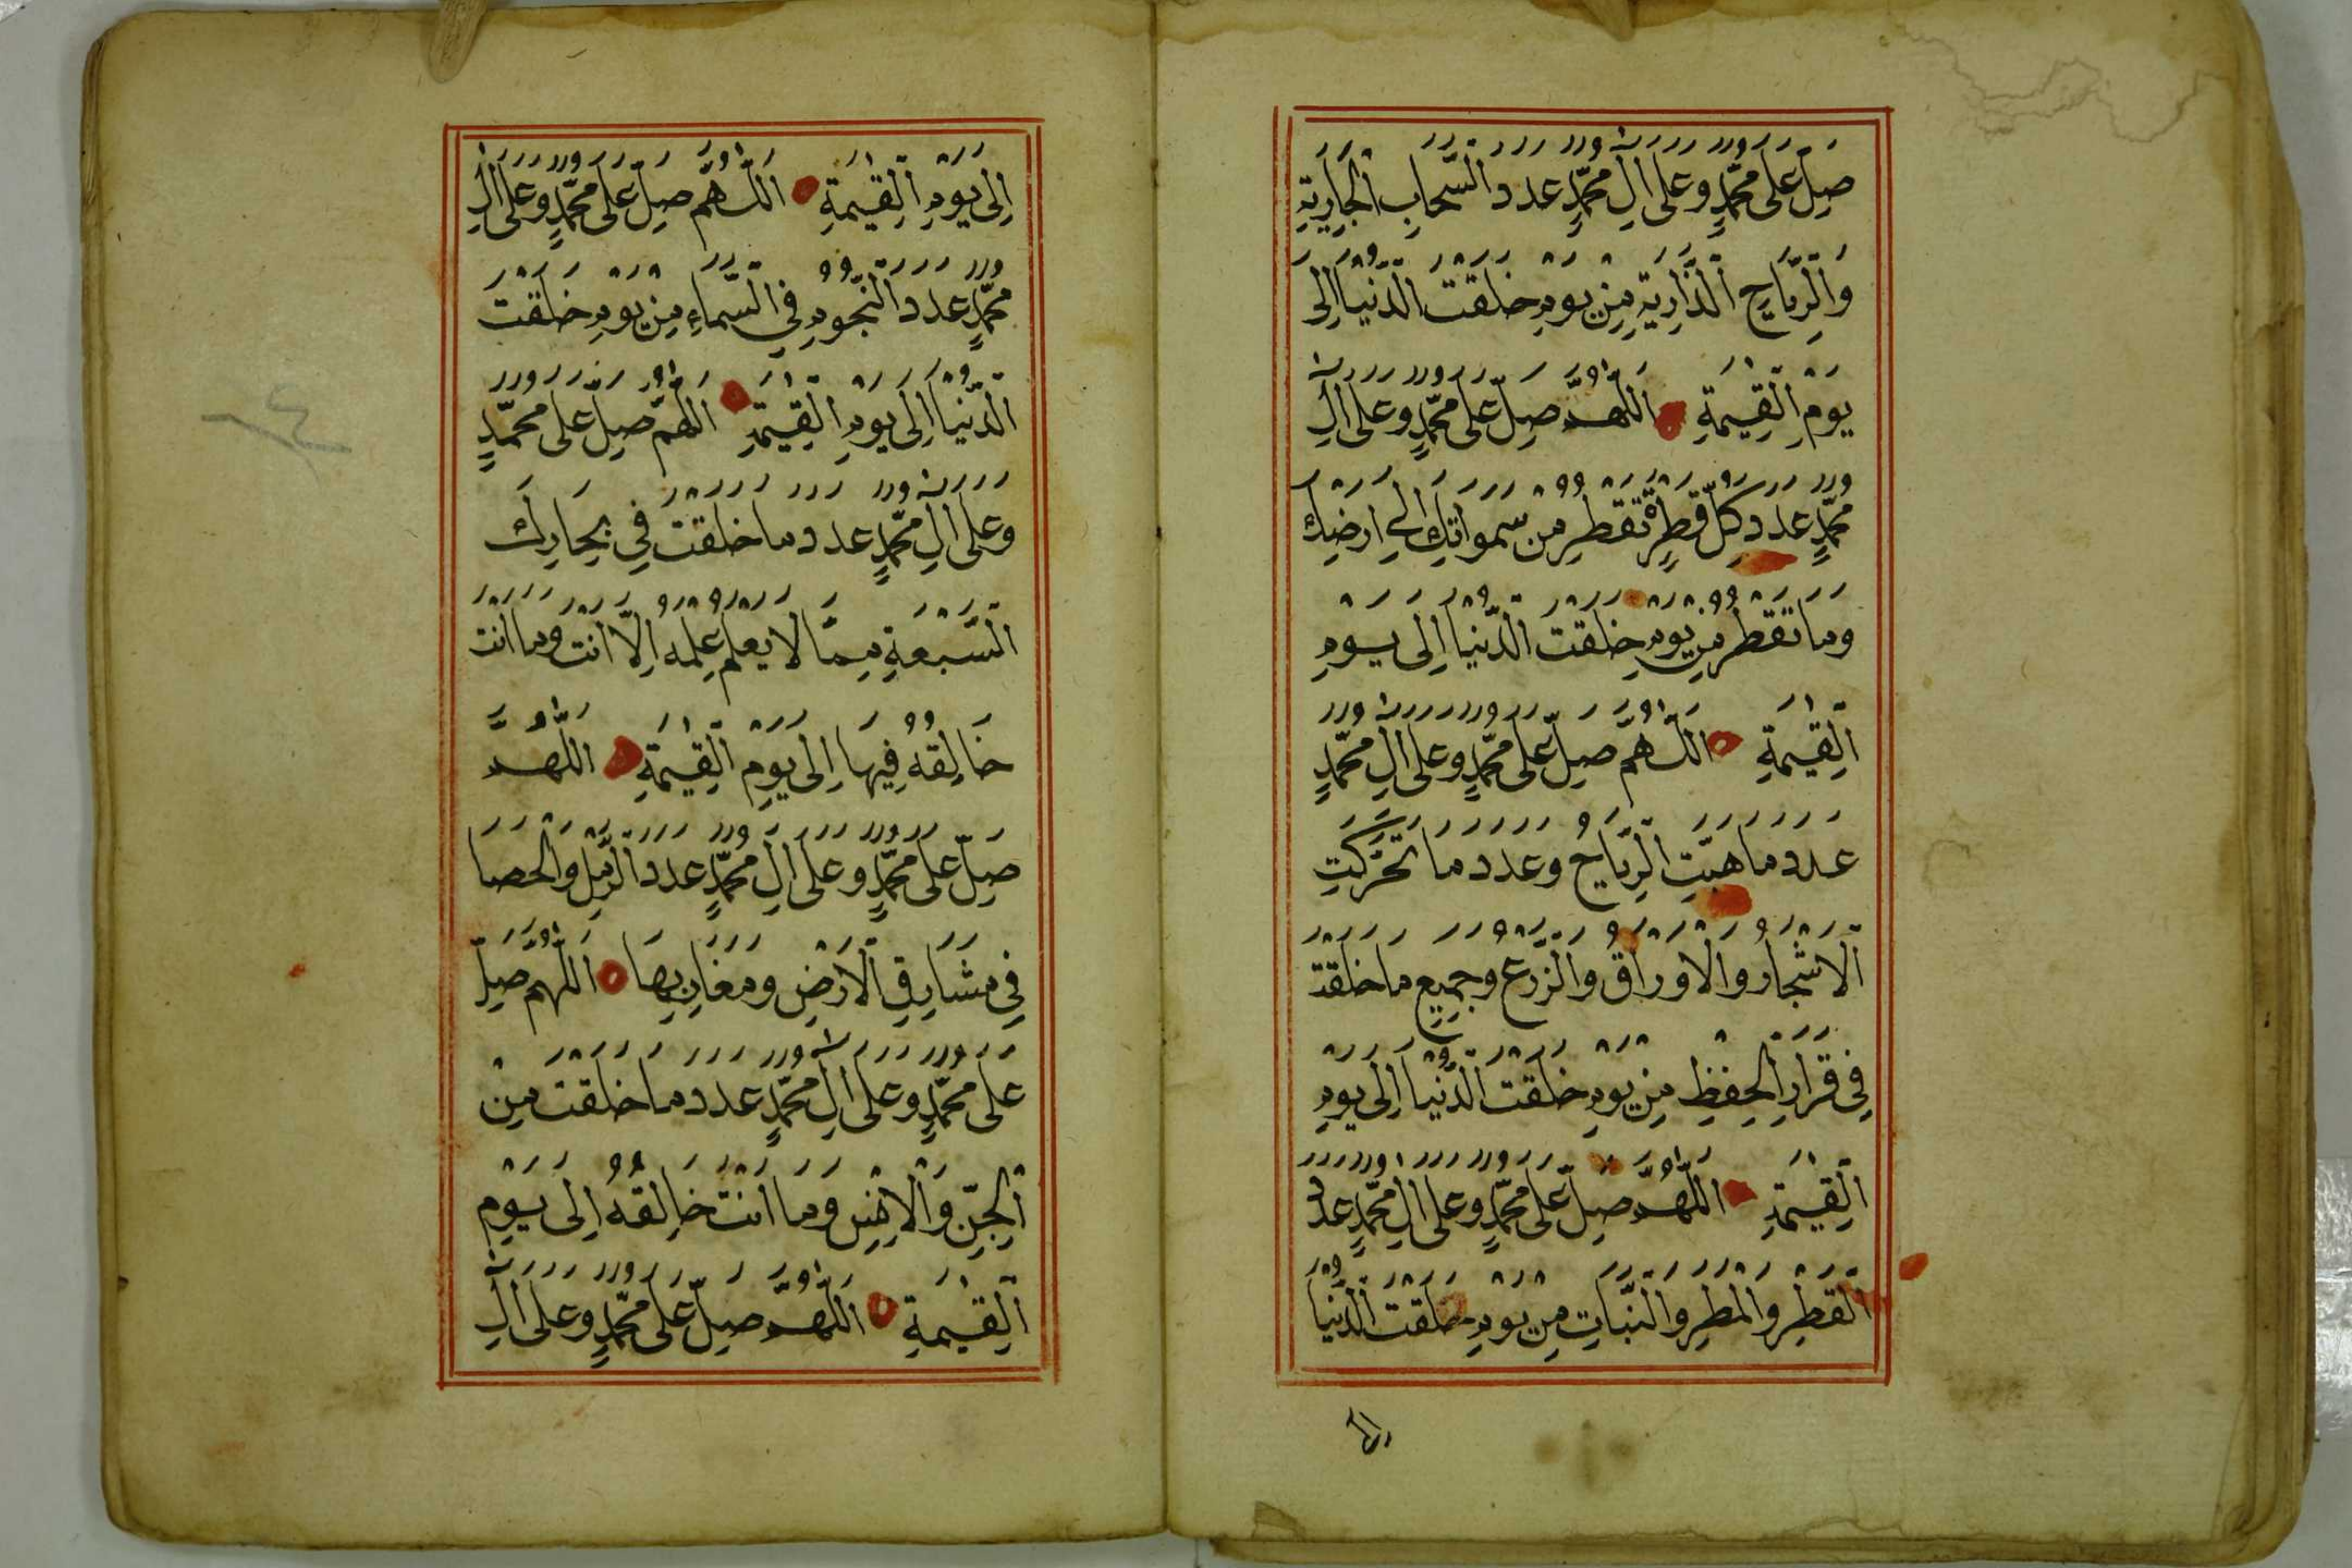 صَلِّ عَلَى مُحَمَّدٍ وَعَلَى اٰلِ مُحَمَّدٍ عَدَدَ السَّحَابِ الْجَارِيَةِ
وَالرِّيَاحِ الذَّارِيَةِ مِنْ يَوْمِ خَلَقْتَ الدُّنْيَا اِلَى
يَوْمِ الْقِيٰمَةِ اَللّٰهُمَّ صَلِّ عَلَى مُحَمَّدٍ وَعَلَى اٰلِ
مُحَمَّدٍ عَدَدَ كُلِّ قَطْرَةٍ تَقْطُرُ مِنْ سَمٰوَاتِكَ اِلَى اَرْضِكَ
وَمَا تَقْطُرُ مِنْ يَوْمِ خَلَقْتَ الدُّنْيَا اِلَى يَوْمِ
الْقِيٰمَةِ اَللّٰهُمَّ صَلِّ عَلَى مُحَمَّدٍ وَعَلَى اٰلِ مُحَمَّدٍ
عَدَدَ مَا هَبَّتِ الرِّيَاحُ وَعَدَدَ مَا تَحَرَّكَتِ
الْاَشْجَارُ وَالْاَوْرَاقُ وَالزَّرْعُ وَجَمِيعِ مَا خَلَقْتَ
فِي قَرَارِ الْحِفْظِ مِنْ يَوْمِ خَلَقْتَ الدُّنْيَا اِلَى يَوْمِ
الْقِيٰمَةِ اَللّٰهُمَّ صَلِّ عَلَى مُحَمَّدٍ وَعَلَى اٰلِ مُحَمَّدٍ عَدَدَ
الْقَطْرِ وَالْمَطَرِ وَالنَّبَاتِ مِنْ يَوْمِ خَلَقْتَ الدُّنْيَا
اِلَى يَوْمِ الْقِيٰمَةِ اَللّٰهُمَّ صَلِّ عَلَى مُحَمَّدٍ وَعَلَى اٰلِ
مُحَمَّدٍ عَدَدَ النُّجُومِ فِي السَّمَاءِ مِنْ يَوْمِ خَلَقْتَ
الدُّنْيَا اِلَى يَوْمِ الْقِيٰمَةِ اَللّٰهُمَّ صَلِّ عَلَى مُحَمَّدٍ
وَعَلَى اٰلِ مُحَمَّدٍ عَدَدَ مَا خَلَقْتَ فِي بِحَارِكَ
السَّبْعَةِ مِمَّا لَا يَعْلَمُ عِلْمَهُ اِلَّا اَنْتَ وَمَا اَنْتَ
خَالِقُهُ فِيهَا اِلَى يَوْمِ الْقِيٰمَةِ اَللّٰهُمَّ
صَلِّ عَلَى مُحَمَّدٍ وَعَلَى اٰلِ مُحَمَّدٍ عَدَدَ الرَّمْلِ وَالْحَصَا
فِي مَشَارِقِ الْاَرْضِ وَمَغَارِبِهَا اَللّٰهُمَّ صَلِّ
عَلَى مُحَمَّدٍ وَعَلَى اٰلِ مُحَمَّدٍ عَدَدَ مَا خَلَقْتَ مِنْ
الْجِنِّ وَالْاِنْسِ وَمَا اَنْتَ خَالِقُهُ اِلَى يَوْمِ
الْقِيٰمَةِ اَللّٰهُمَّ صَلِّ عَلَى مُحَمَّدٍ وَعَلَى اٰلِ